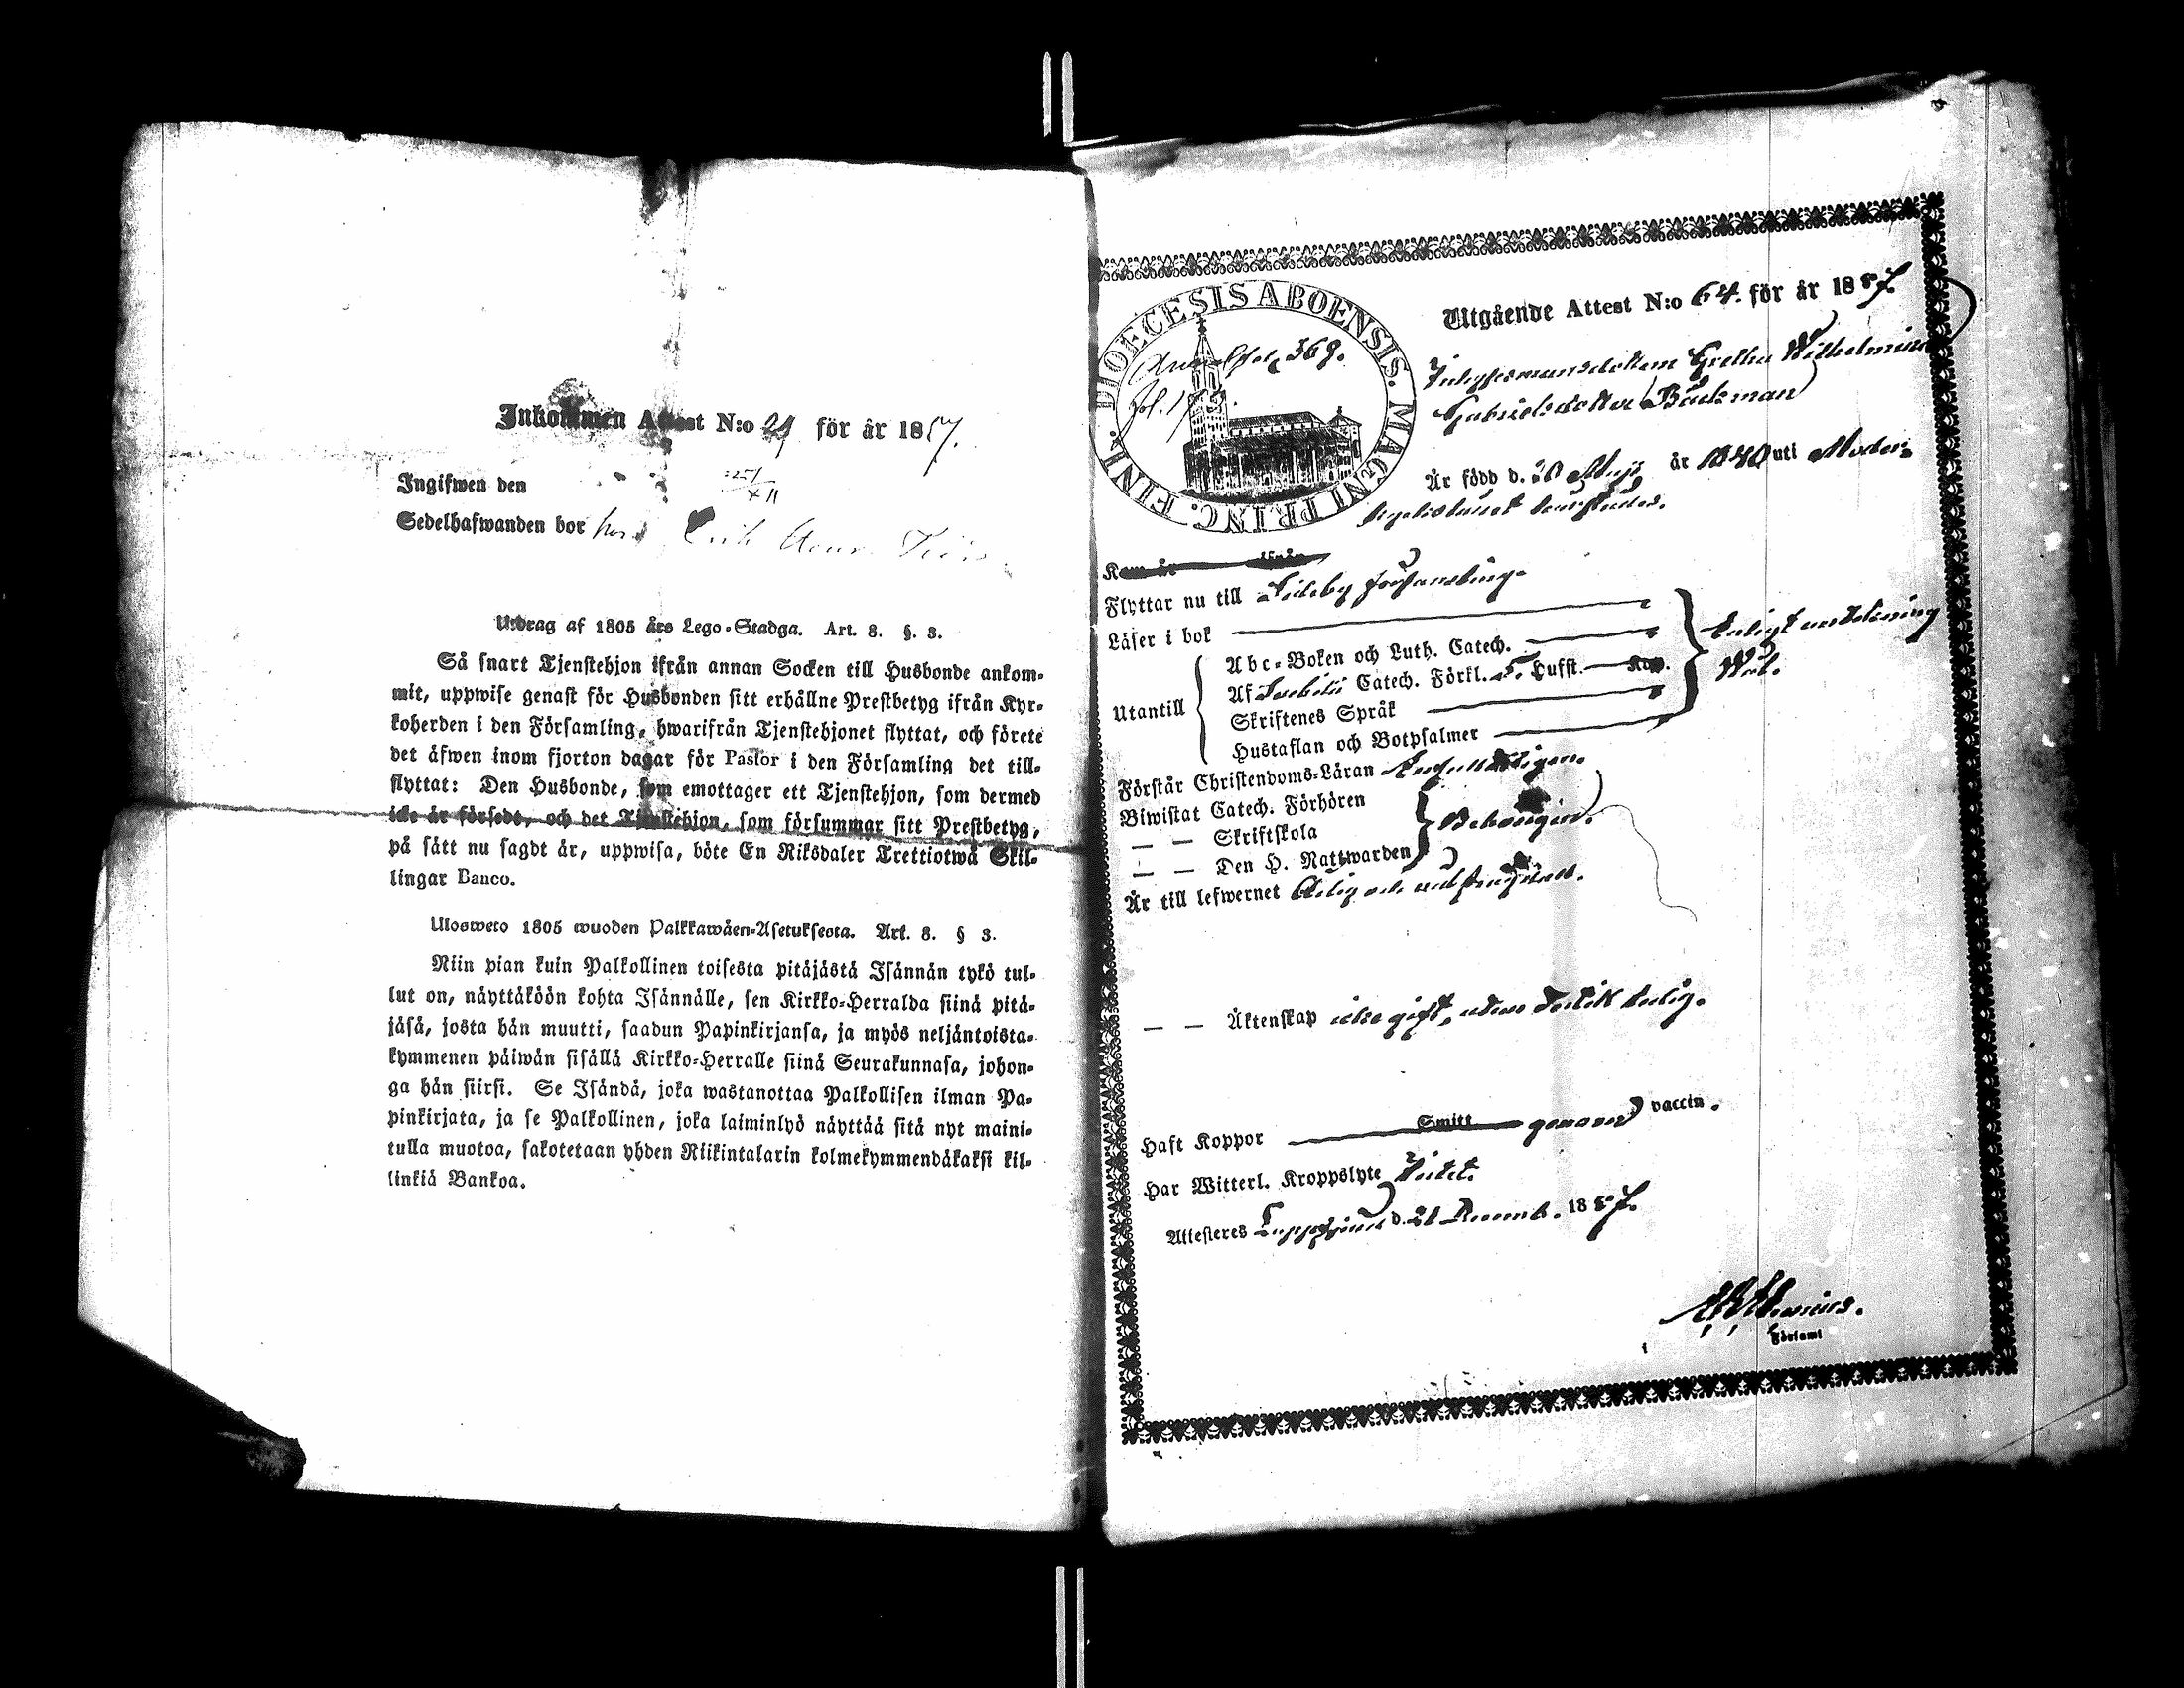 Inkommen Attest N:o 29 för år 1857.
Ingifwen den
Sedelhafwanden bor hos Erik
Utdrag af 1805 års Lego-Stadga. Art. 8. §. 3.
Så snart Tjenstehjon ifrån annan Socken till Husbonde ankom-
mit, uppwise genast för Husbonden sitt erhållne Prestbetyg ifrån Kyr-
koherden i den Församling, hwarifrån Tjenstehjonet flyttat, och förete
det äfwen inom fjorton dagar för Pastor i den Församling det till-
flyttat: Den Husbonde, som emottager ett Tjenstehjon, som dermed
icke är försedt, och det Tjenstehjon, som försummar sitt Prestbetyg,
på sätt nu sagdt är, uppwisa, böte En Riksdaler Trettiotwå Skil-
lingar Banco.
Ulosweto 1805 wuoden Palkkawäen-Asetuksesta. Art. 8. § 3.
Niin pian kuin Palkollinen toisesta pitäjästä Isännän tykö tul-
lut on, näyttäköön kohta Isännälle, sen Kirkko-Herralda siinä pitä-
jäsä, josta hän muutti, saadun Papinkirjansa, ja myös neljäntoista-
kymmenen päiwän sisällä Kirkko-Herralle siinä Seurakunnasa, johon-
ga hän siirsi. Se Isändä, joka wastanottaa Palkollisen ilman Pa-
pinkirjata, ja se Palkollinen, joka laiminlyö näyttää sitä nyt maini-
tulla muotoa, sakotetaan yhden Riikintalarin kolmekymmendäkaksi kil-
linkiä Bankoa.
DIOECESIS ABOENSIS. MAGNI PRINC. FINL.
369.
Utgående Attest N:o 64. för år 1857.
Inhysesmansdottern Gretha Wilhelmina
Gabrielsdotter Bäckman
Är född d. 20 Maji år 1840 uti Moder-
Kom år ifrån
Flyttar nu till Sideby
Läser i bok
Abc-Boken och Luth. Catech.
Utantill
Af Svebilii Catech. Förkl. 5. Hufst. Kap.
Enligt anteckning
Wäl.
Skriftenes Språk
Hustaflan och Botpsalmer
Förstår Christendoms-Läran Enfalldeligen.
Biwistat Catech. Förhören
— — Skriftskola
Behörigen.
— — Den H. Nattwarden
Är till lefwernet Ärlig och
— — Äktenskap icke gift, utan ledig.
Haft Koppor Smitt genom vaccin.
Har Witterl. Kroppslyte Intet.
Attesteras Lappfjärd d. 21 Decemb. 1857.